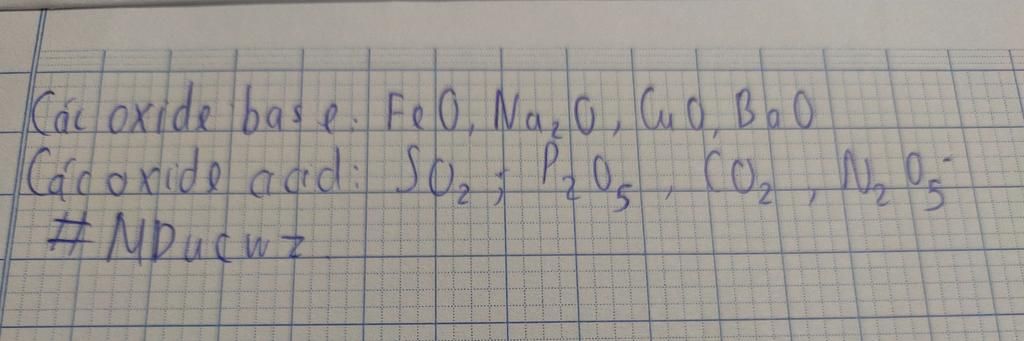 Các oxide base: FeO, Na₂O, CuO, BaO
Các oxide acid: SO₂, P₂O₅, CO₂, N₂O₅
#MDucwz